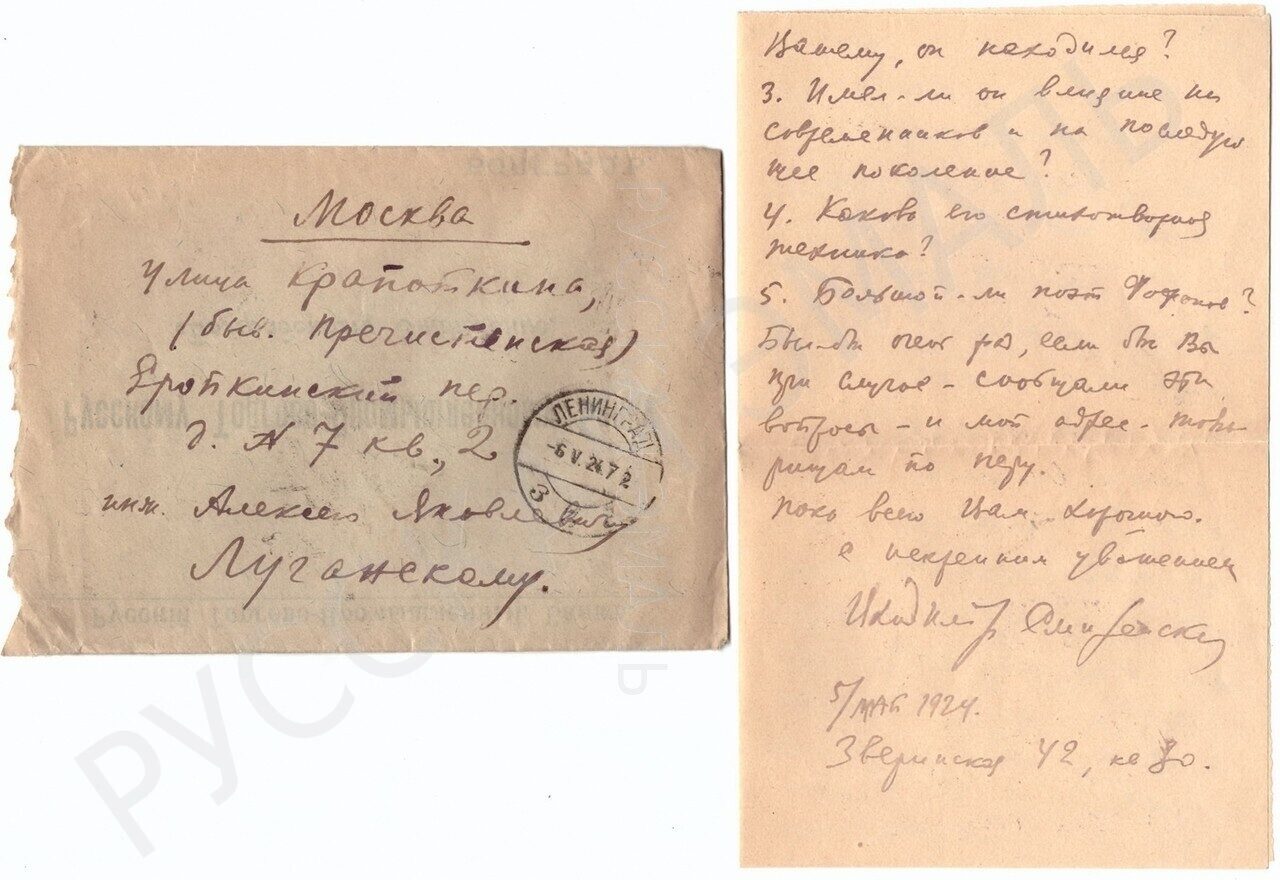 Москва
улица Крапоткина,
(быв. Пречистенская)
Еропкинский пер.
д. N 7 кв. 2
инж. Алексею Яковлевичу
Луганскому.
ЛЕНИНГРАД
-6 V. 24
3
Вашему, он находился?
3. Имел-ли он влияние на
современников и на последую
щее поколение?
4. Какова его стихотворная
техника?
5. Большой-ли поэт Фофанов?
Был-бы очень рад, если бы Вы
при случае - сообщали эти
вопросы - и мой адрес - това-
рищам по перу.
Пока всего Вам хорошего.
с искренним уважением
Владимир Смиренский
5/мая 1924.
Зверинская 42, кв 30.
РУССКАЯ ЭМАЛЬ